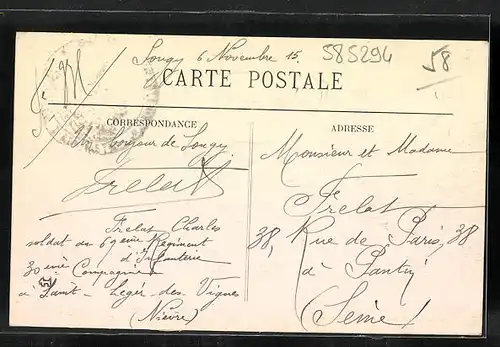 Sougy 6 Novembre 15.
585294
58
F M
CARTE POSTALE
CORRESPONDANCE
ADRESSE
bonjour de Sougy
Frelat
Frelat Charles
soldat au 69ème Régiment
d'Infanterie
30ième Compagnie
à Saint-Leger-des-Vignes
(Nièvre)
Monsieur et Madame
Frelat
38, Rue de Paris, 38
à Pantin
(Seine)